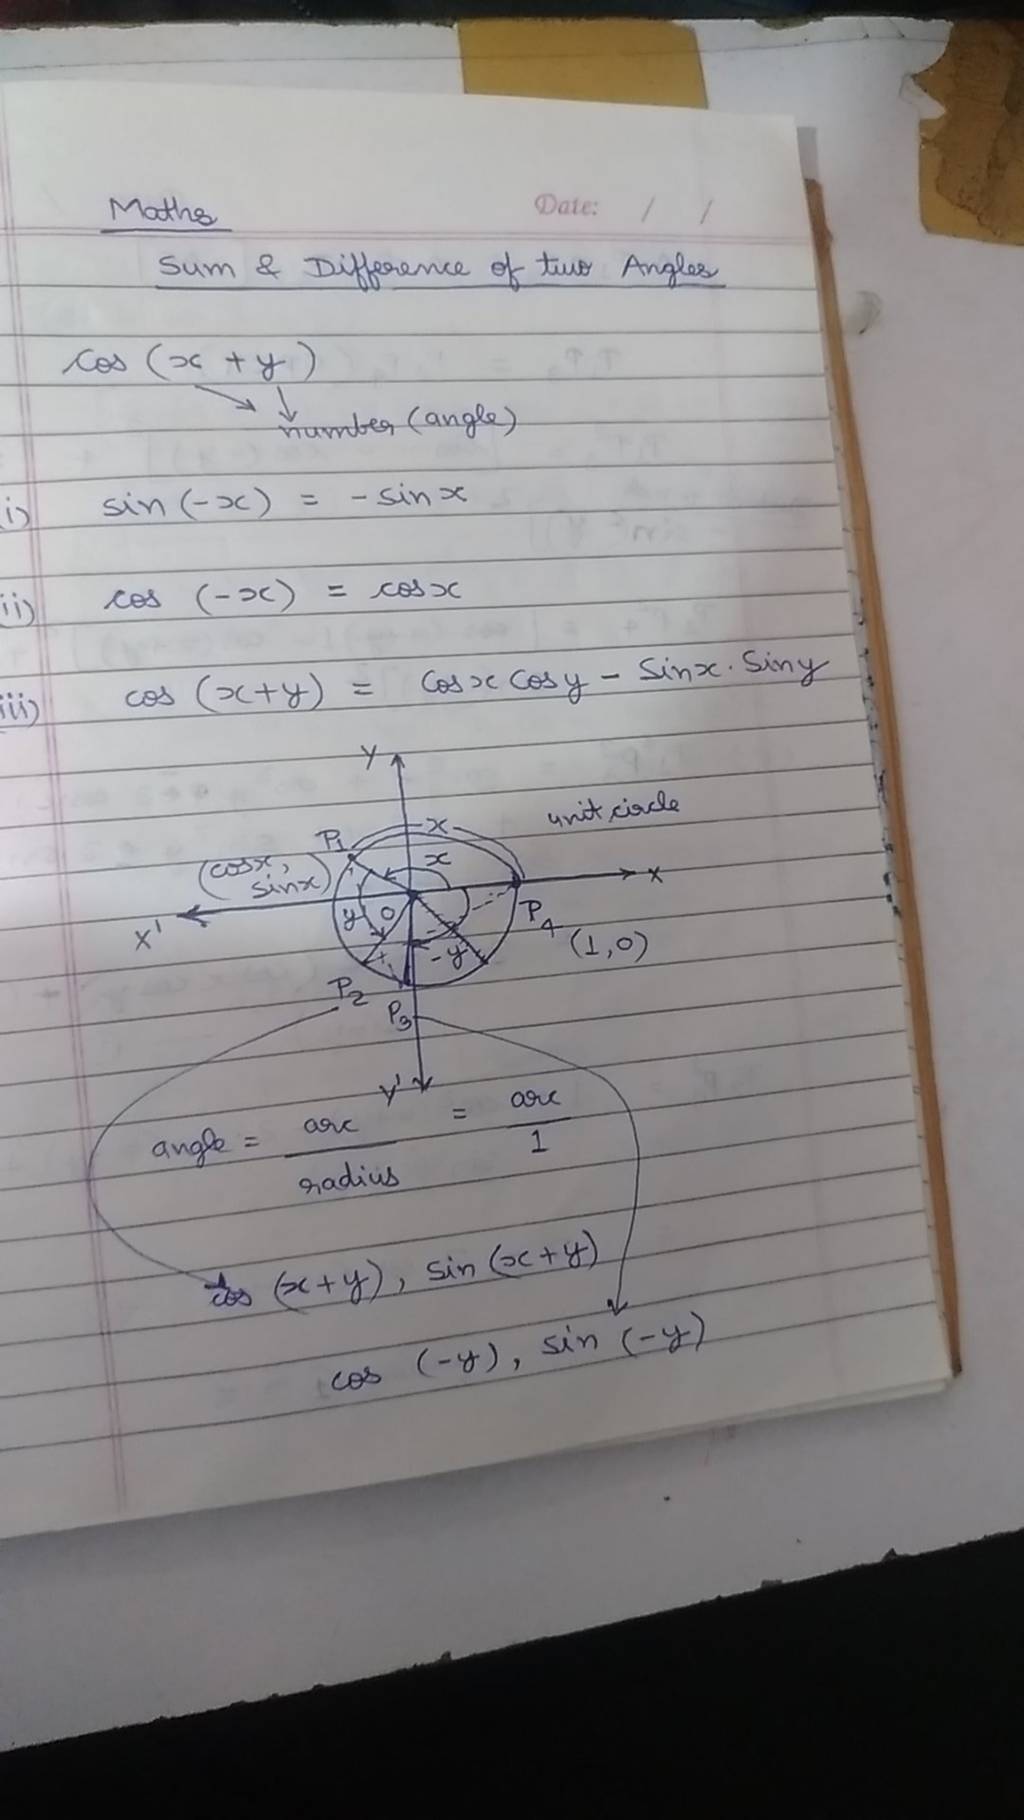 Maths
Date: / /
Sum & Difference of two Angles
cos (x + y)
number (angle)
i) sin (-x) = - sin x
ii) cos (-x) = cos x
iii) cos (x+y) = Cosx Cosy - Sinx . Siny
Y
unit circle
P1
x
(cosx,
sinx)
x
X
y
O
P4
X'
-y
(1,0)
P2
P3
Y'
angle = arc / radius = arc / 1
cos (x+y), sin (x+y)
cos (-y), sin (-y)